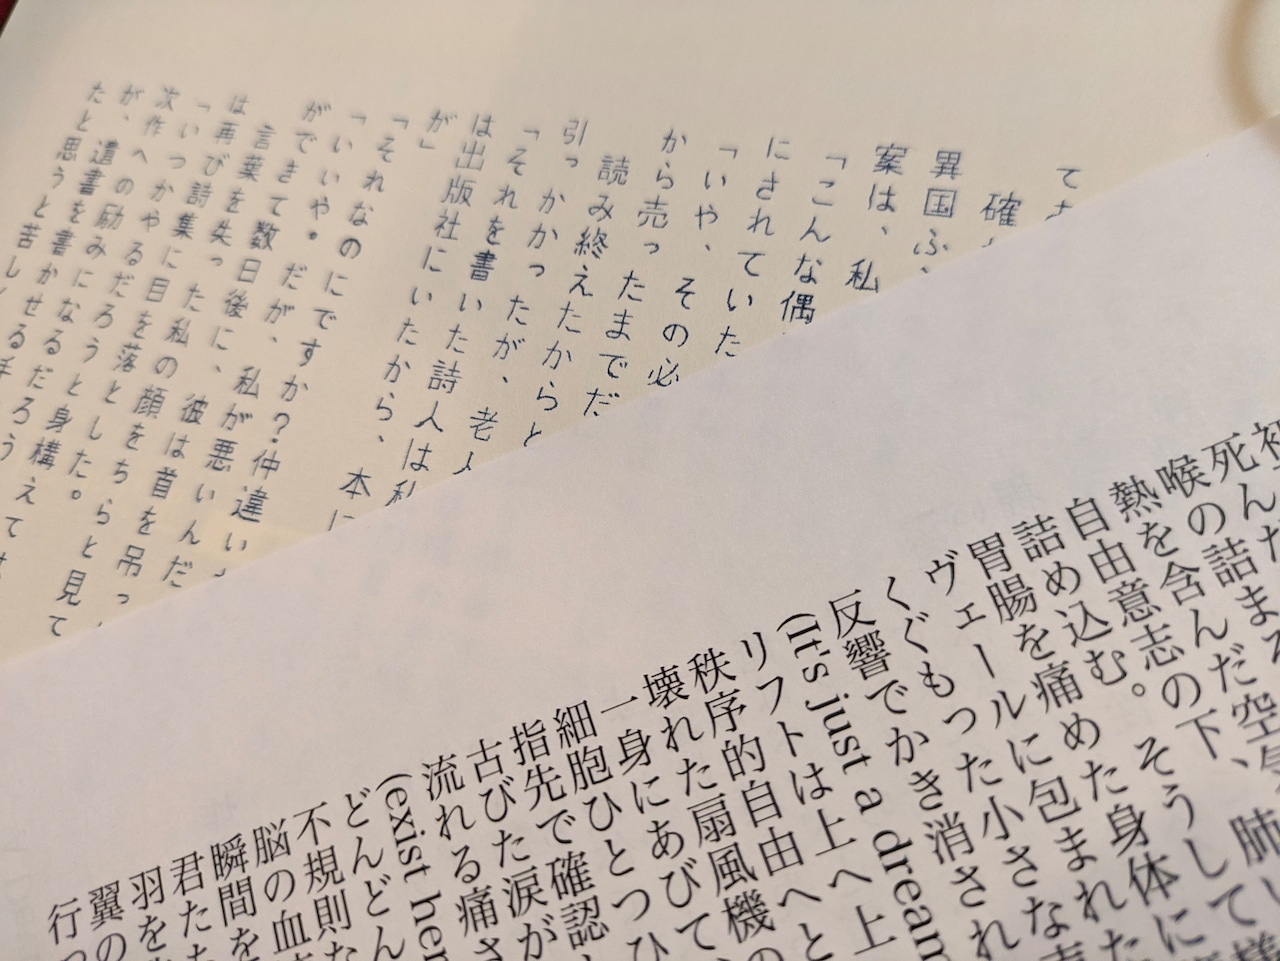 てお
確
異国ふ
案は、私
「こんな偶
にされていた
「いや、その必
から売ったまでだ
読み終えたからと
引っかかったが、老人
「それを書いた詩人は私
は出版社にいたから、本に
が」
「それなのにですか？仲違い
「いいや。だが、私が悪いんだ
ができて数日後に、彼は首を吊っ
言葉を失った私の顔をちらと見て
は再び詩集に目を落とした。
「いつかやるだろうと身構えては
次作への励みになるだろう
が、遺書を書かせる
たと思うと苦し
死んだ
喉の詰まる
熱を含んだ空気 肺
自由意志の下、そうして
詰め込む。
胃腸を痛めた身体に
ヴェールに包まれた
くぐもった小さな
反響でかき消され
(It's just a dream
リフトは上へ上
秩序的自由へと
壊れた扇風機の
一身にあびて、
細胞ひとつひ
指先で確認
古びた涙が
流れる痛さ
(exist her
どんどん
不規則な
脳の血
瞬間を
君たち
羽を
翼の
行